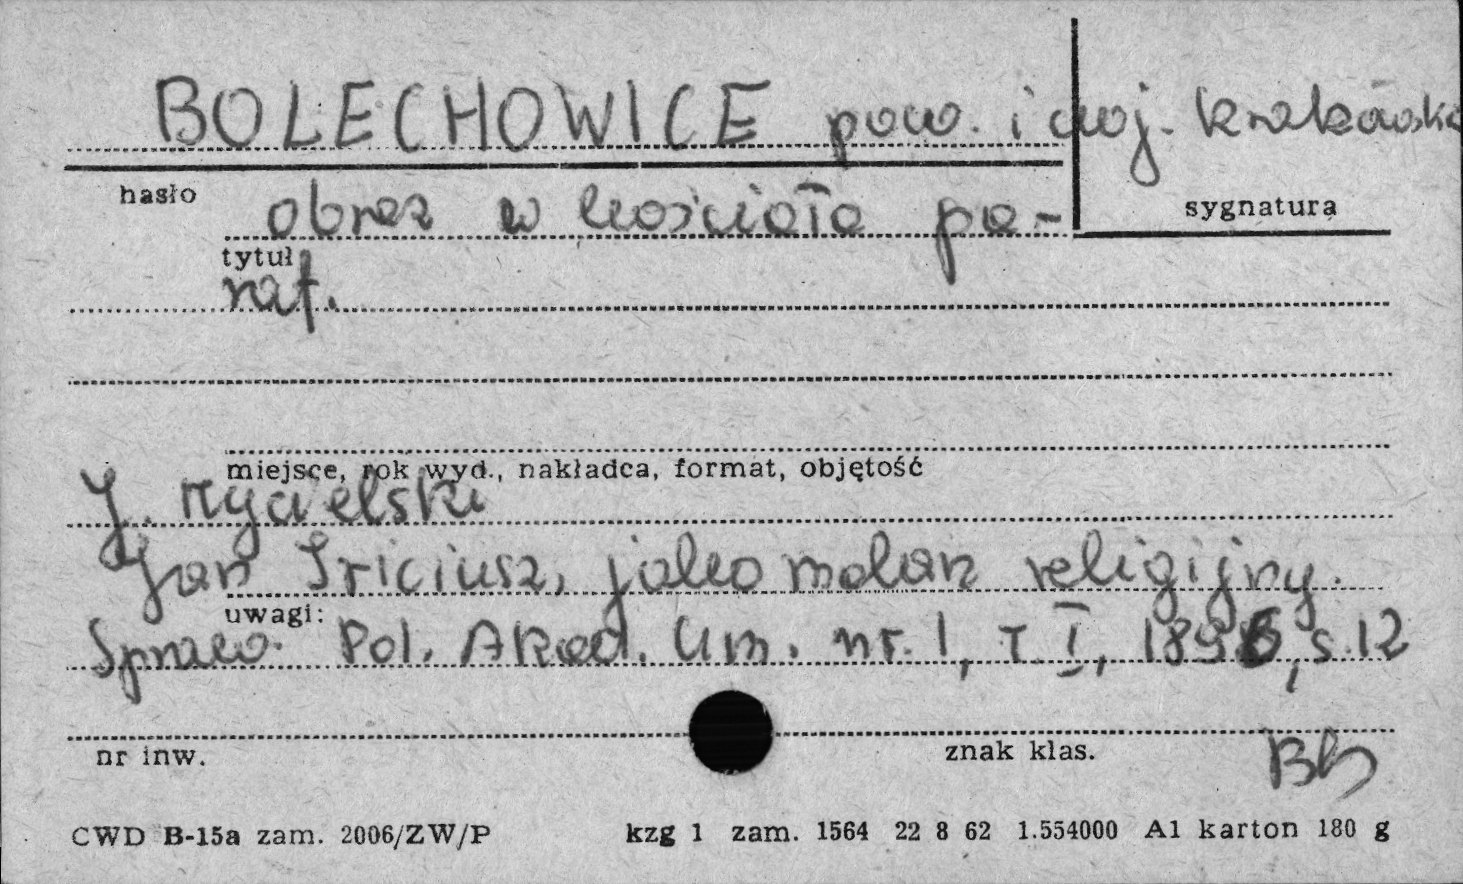 BOLECHOWICE pow. i woj. krakowskie
hasło
sygnatura
obraz w kościele pa-
tytuł
raf.
miejsce, rok wyd., nakładca, format, objętość
J. Mycielski
Jan Triciusz, jako malarz religijny.
uwagi:
Spraw. Pol. Akad. Um. nr. 1, T. I, 1896, s. 12
nr inw.
znak klas.
CWD B-15a zam. 2006/ZW/P
kzg 1 zam. 1564 22 8 62 1.554000 A1 karton 180 g